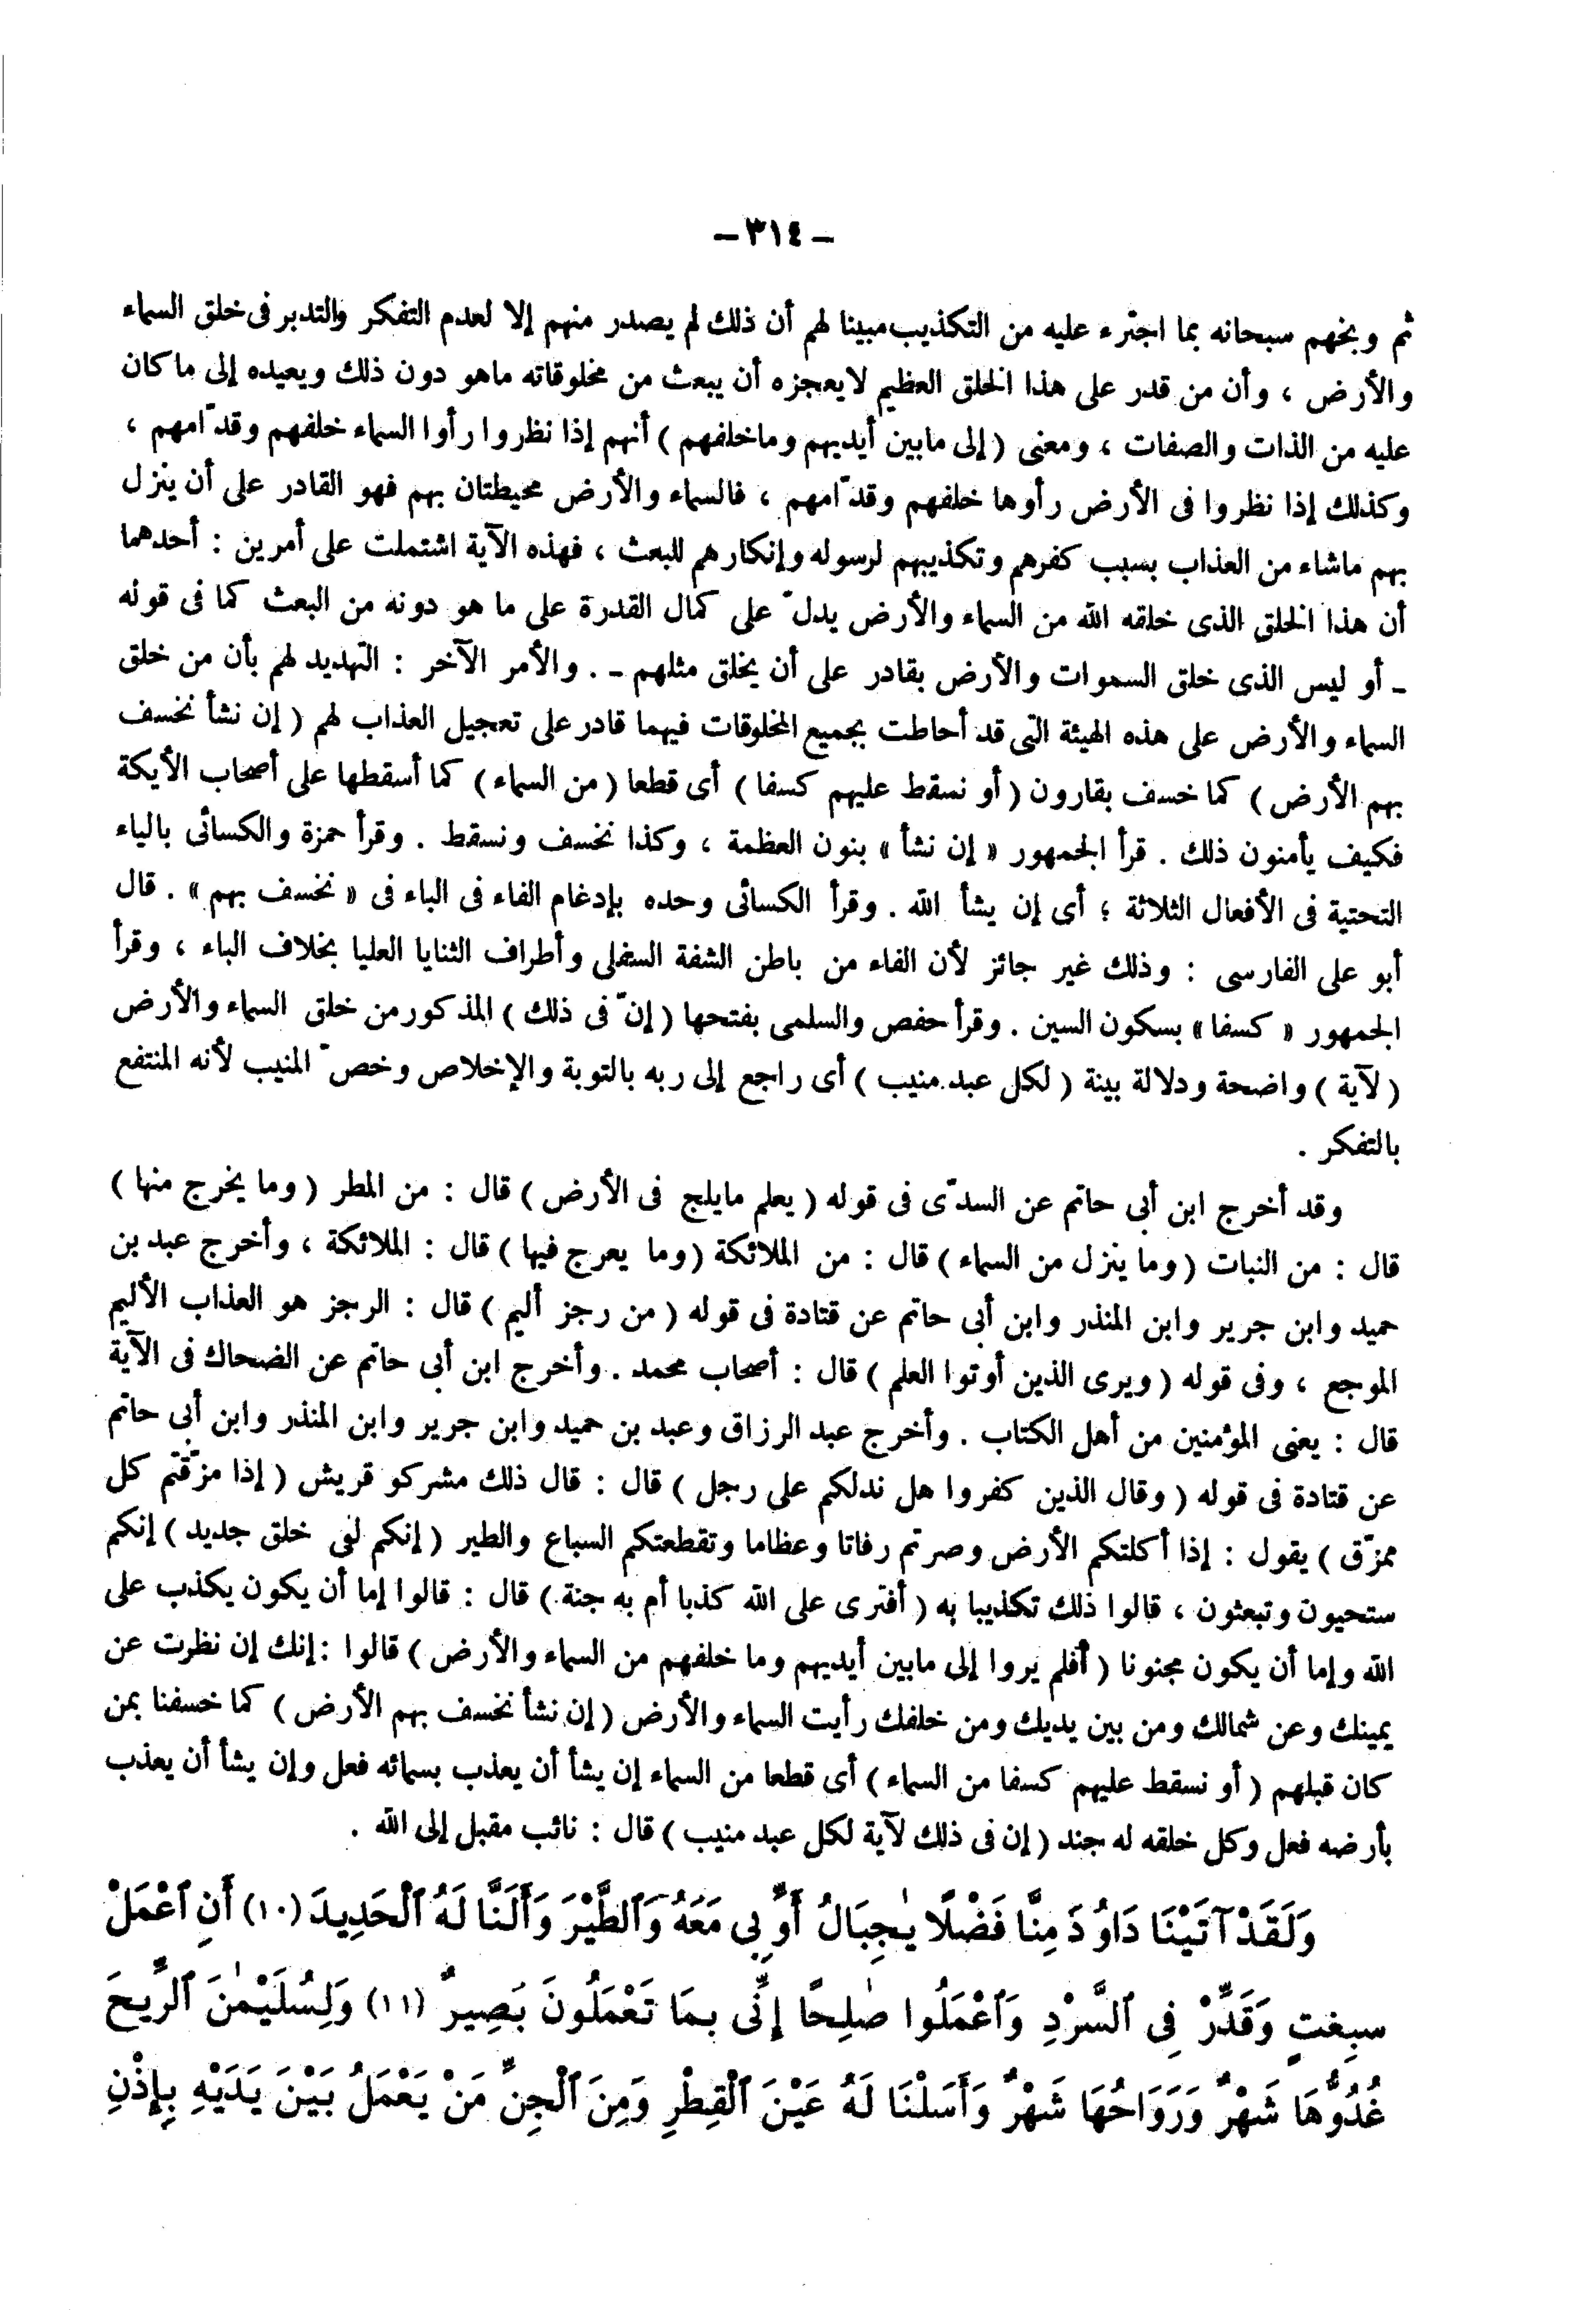 – ٣١٤ –
ثم وبخهم سبحانه بما اجترء عليه من التكذيب مبينا لهم أن ذلك لم يصدر منهم إلا لعدم التفكر والتدبر فى خلق السماء
والأرض ، وأن من قدر على هذا الخلق العظيم لايعجزه أن يبعث من مخلوقاته ماهو دون ذلك ويعيده إلى ماكان
عليه من الذات والصفات ، ومعنى ( إلى مابين أيديهم وماخلفهم ) أنهم إذا نظروا رأوا السماء خلفهم وقدّامهم ،
وكذلك إذا نظروا فى الأرض رأوها خلفهم وقدّامهم ، فالسماء والأرض محيطتان بهم فهو القادر على أن ينزل
بهم ماشاء من العذاب بسبب كفرهم وتكذيبهم لرسوله وإنكارهم للبعث ، فهذه الآية اشتملت على أمرين : أحدهما
أن هذا الخلق الذى خلقه الله من السماء والأرض يدلّ على كمال القدرة على ما هو دونه من البعث كما فى قوله
ـ أو ليس الذى خلق السموات والأرض بقادر على أن يخلق مثلهم ـ . والأمر الآخر : التهديد لهم بأن من خلق
السماء والأرض على هذه الهيئة التى قد أحاطت بجميع المخلوقات فيهما قادر على تعجيل العذاب لهم ( إن نشأ نخسف
بهم الأرض ) كما خسف بقارون ( أو نسقط عليهم كسفا ) أى قطعا ( من السماء ) كما أسقطها على أصحاب الأيكة
فكيف يأمنون ذلك . قرأ الجمهور « إن نشأ » بنون العظمة ، وكذا نخسف ونسقط . وقرأ حمزة والكسائى بالياء
التحتية فى الأفعال الثلاثة ؛ أى إن يشأ الله . وقرأ الكسائى وحده بإدغام الفاء فى الباء فى « نخسف بهم » . قال
أبو على الفارسى : وذلك غير جائز لأن الفاء من باطن الشفة السفلى وأطراف الثنايا العليا بخلاف الباء ، وقرأ
الجمهور « كسفا » بسكون السين . وقرأ حفص والسلمى بفتحها ( إنّ فى ذلك ) المذكور من خلق السماء والأرض
( لآية ) واضحة ودلالة بينة ( لكل عبد منيب ) أى راجع إلى ربه بالتوبة والإخلاص وخصّ المنيب لأنه المنتفع
بالتفكر .
وقد أخرج ابن أبى حاتم عن السدّى فى قوله ( يعلم مايلج فى الأرض ) قال : من المطر ( وما يخرج منها )
قال : من النبات ( وما ينزل من السماء ) قال : من الملائكة ( وما يعرج فيها ) قال : الملائكة ، وأخرج عبد بن
حميد وابن جرير وابن المنذر وابن أبى حاتم عن قتادة فى قوله ( من رجز أليم ) قال : الرجز هو العذاب الأليم
الموجع ، وفى قوله ( ويرى الذين أوتوا العلم ) قال : أصحاب محمد . وأخرج ابن أبى حاتم عن الضحاك فى الآية
قال : يعنى المؤمنين من أهل الكتاب . وأخرج عبد الرزاق وعبد بن حميد وابن جرير وابن المنذر وابن أبى حاتم
عن قتادة فى قوله ( وقال الذين كفروا هل ندلكم على رجل ) قال : قال ذلك مشركو قريش ( إذا مزّقتم كل
ممزّق ) يقول : إذا أكلتكم الأرض وصرتم رفاتا وعظاما وتقطعتكم السباع والطير ( إنكم لفى خلق جديد ) إنكم
ستحيون وتبعثون ، قالوا ذلك تكذيبا به ( أفترى على الله كذبا أم به جنة ) قال : قالوا إما أن يكون يكذب على
الله وإما أن يكون مجنونا ( أفلم يروا إلى مابين أيديهم وما خلفهم من السماء والأرض ) قالوا : إنك إن نظرت عن
يمينك وعن شمالك ومن بين يديك ومن خلفك رأيت السماء والأرض ( إن نشأ نخسف بهم الأرض ) كما خسفنا بمن
كان قبلهم ( أو نسقط عليهم كسفا من السماء ) أى قطعا من السماء إن يشأ أن يعذب بسمائه فعل وإن يشأ أن يعذب
بأرضه فعل وكل خلقه له جند ( إن فى ذلك لآية لكل عبد منيب ) قال : تائب مقبل إلى الله .
وَلَقَدْ آتَيْنَا دَاوُدَ مِنَّا فَضْلًا يٰجِبَالُ أَوِّبِى مَعَهُ وَٱلطَّيْرَ وَأَلَنَّا لَهُ ٱلْحَدِيدَ (١٠) أَنِ ٱعْمَلْ
سٰبِغٰتٍ وَقَدِّرْ فِى ٱلسَّرْدِ وَٱعْمَلُوا صٰلِحًا إِنِّى بِمَا تَعْمَلُونَ بَصِيرٌ (١١) وَلِسُلَيْمٰنَ ٱلرِّيحَ
غُدُوُّهَا شَهْرٌ وَرَوَاحُهَا شَهْرٌ وَأَسَلْنَا لَهُ عَيْنَ ٱلْقِطْرِ وَمِنَ ٱلْجِنِّ مَنْ يَعْمَلُ بَيْنَ يَدَيْهِ بِإِذْنِ